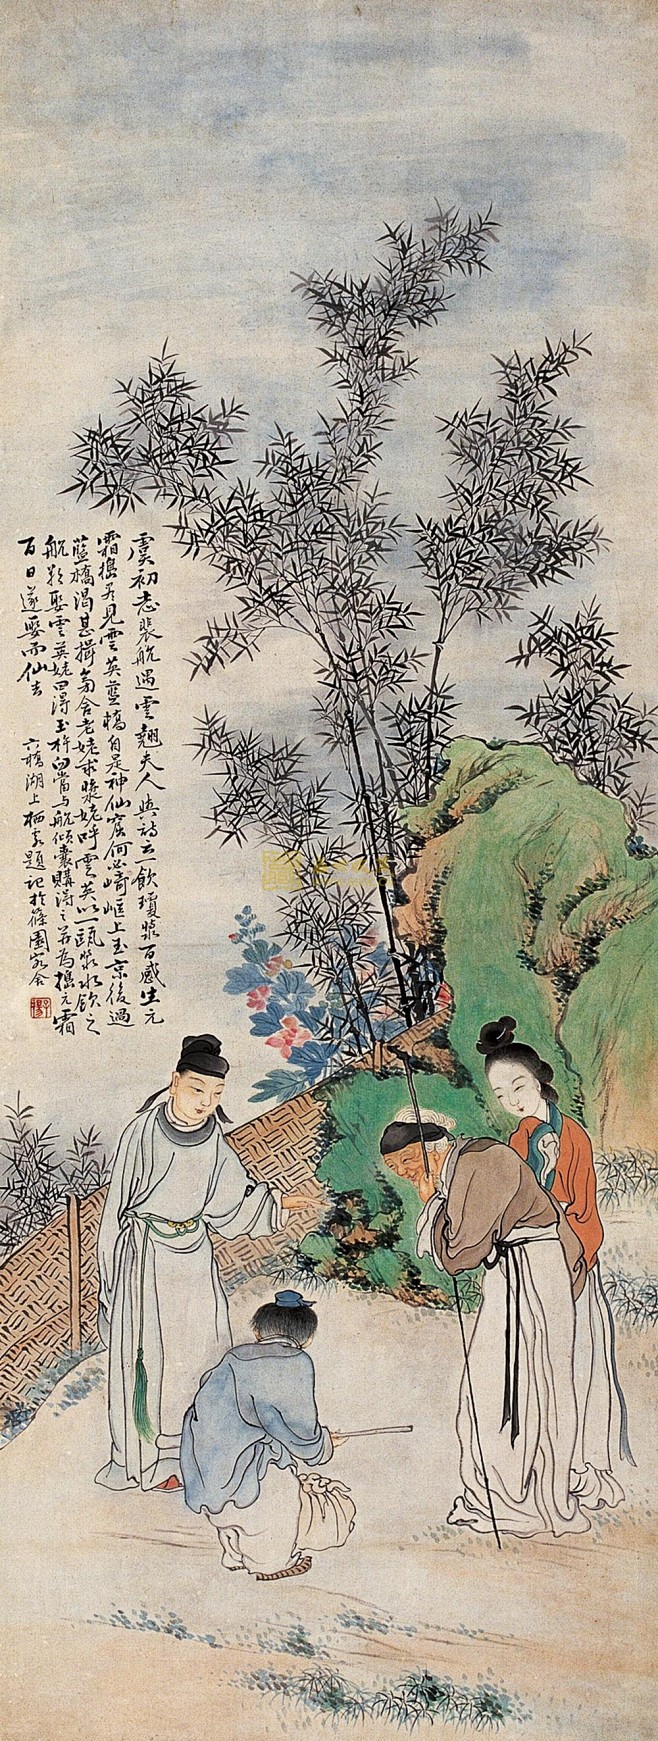 虞初志裴航遇雲翹夫人與詩云一飲瓊漿百感生元
霜搗盡見雲英藍橋自是神仙窟何必崎嶇上玉京後過
藍橋渴甚揖茅舍老姥求漿姥呼雲英以一甌漿水飲之
航欲娶雲英姥曰得玉杵臼當與航傾囊購得之并為搗元霜
百日遂娶而仙去
六橋湖上栖客題記於篠園客舍